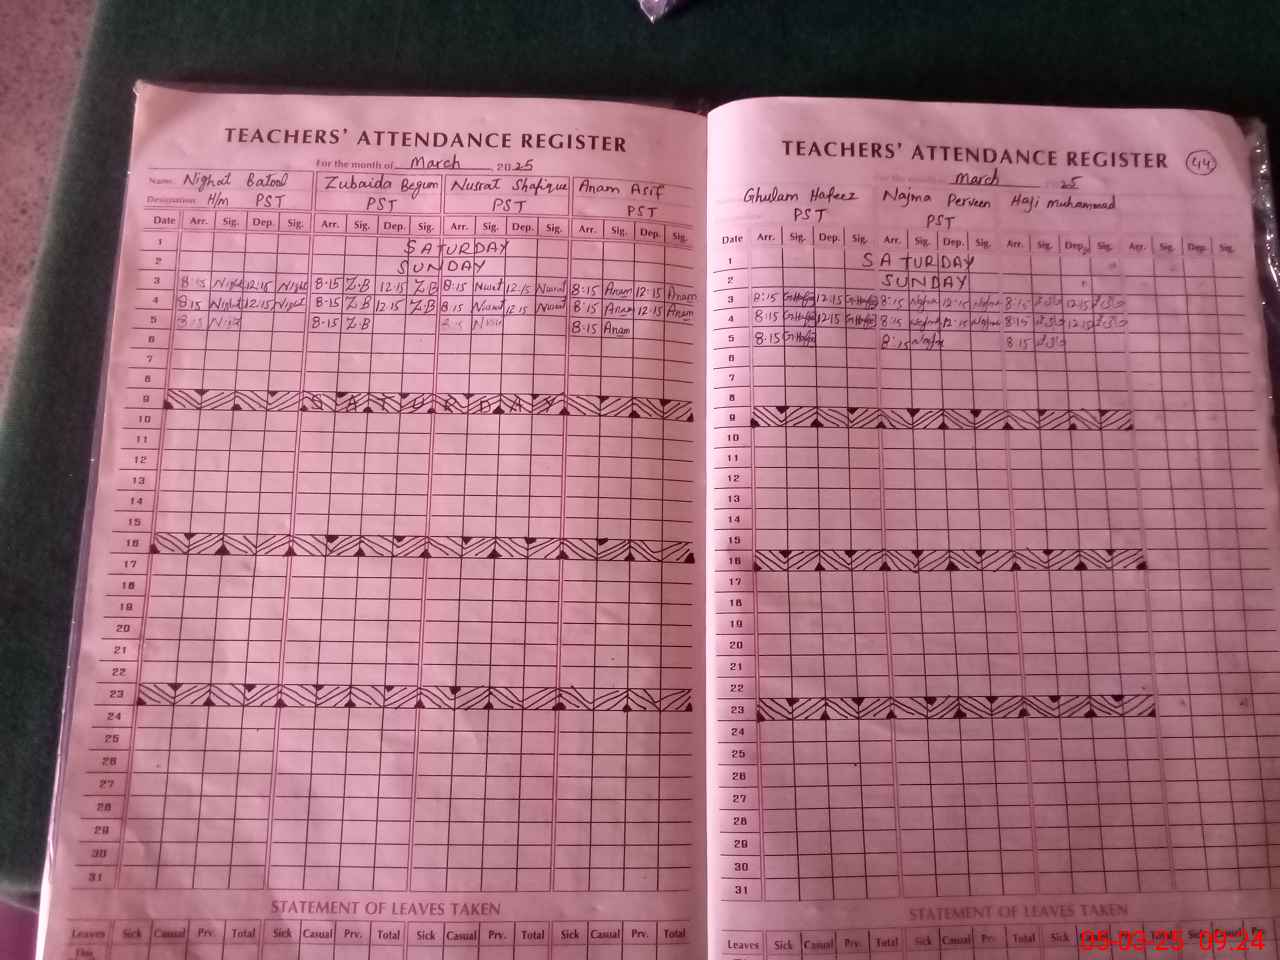 TEACHERS' ATTENDANCE REGISTER
For the month of March 2025
Name: Nighat Batool Zubaida Begum Nusrat Shafique Anam Asif
Designation: H/m PST PST PST PST
Date Arr. Sig. Dep. Sig. Arr. Sig. Dep. Sig. Arr. Sig. Dep. Sig. Arr. Sig. Dep. Sig.
1 SATURDAY
2 SUNDAY
3 8:15 Nighat 12:15 Nighat 8-15 Z.B 12.15 Z.B 8-15 Nusrat 12.15 Nusrat 8:15 Anam 12:15 Anam
4 8:15 Nighat 12:15 Nighat 8-15 Z.B 12.15 Z.B 8.15 Nusrat 12.15 Nusrat 8:15 Anam 12:15 Anam
5 8:15 8-15 Z.B 8:15 Anam
6
7
8
9 SATURDAY
10
11
12
13
14
15
16
17
18
19
20
21
22
23
24
25
26
27
28
29
30
31
STATEMENT OF LEAVES TAKEN
Leaves Sick Casual Prv. Total Sick Casual Prv. Total Sick Casual Prv. Total Sick Casual Prv. Total
This
TEACHERS' ATTENDANCE REGISTER 44
For the month of March 2025
Ghulam Hafeez Najma Perveen Haji Muhammad
PST PST
Date Arr. Sig. Dep. Sig. Arr. Sig. Dep. Sig. Arr. Sig. Dep. Sig. Arr. Sig. Dep. Sig.
1 SATURDAY
2 SUNDAY
3 8:15 GHafiz 12:15 GHafiz 8:15 Najma 12:15 Najma 8:15 12:15
4 8:15 GHafiz 12:15 GHafiz 8:15 Najma 12:15 Najma 8:15 12:15
5 8.15 GHafiz 8:15 Najma 8.15
6
7
8
9
10
11
12
13
14
15
16
17
18
19
20
21
22
23
24
25
26
27
28
29
30
31
STATEMENT OF LEAVES TAKEN
Leaves Sick Casual Prv. Total Sick Casual Prv. Total Sick Casual Prv. Total Sick Casual
05-03-25 09:24